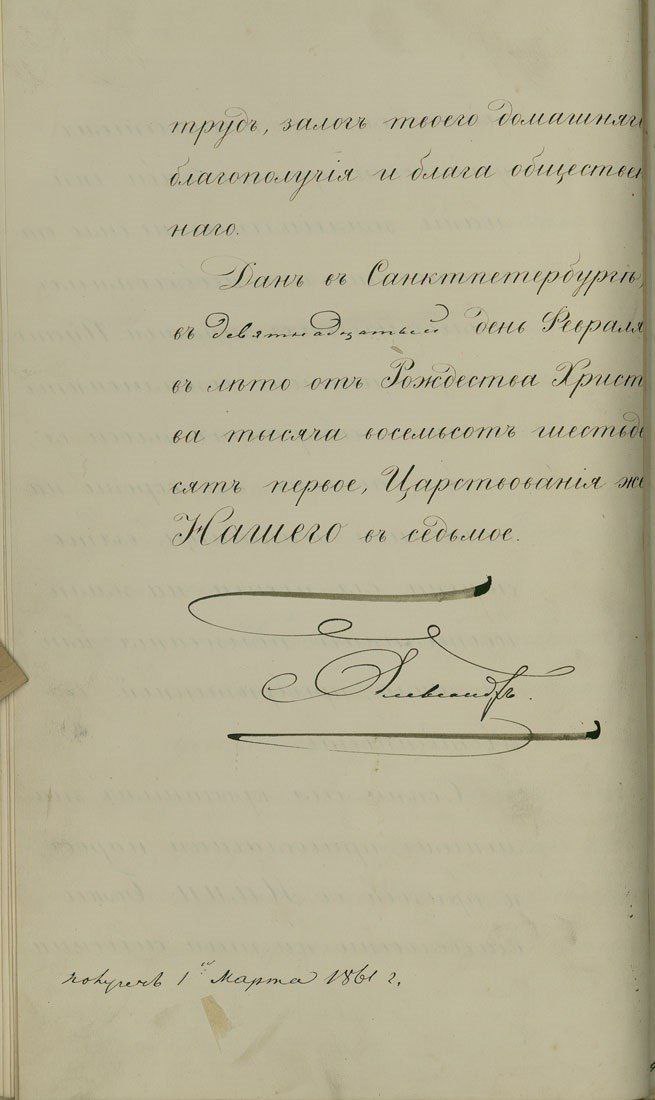 трудъ, залогъ твоего домашняг
благополучія и блага обществен
наго.
Данъ въ Санктпетербургѣ,
въ девятнадцатый день Февраля
въ лѣто отъ Рождества Христ
ва тысяча восемьсотъ шестьде
сятъ первое, Царствованія же
Нашего въ седьмое.
Александръ.
1го Марта 1861 г.